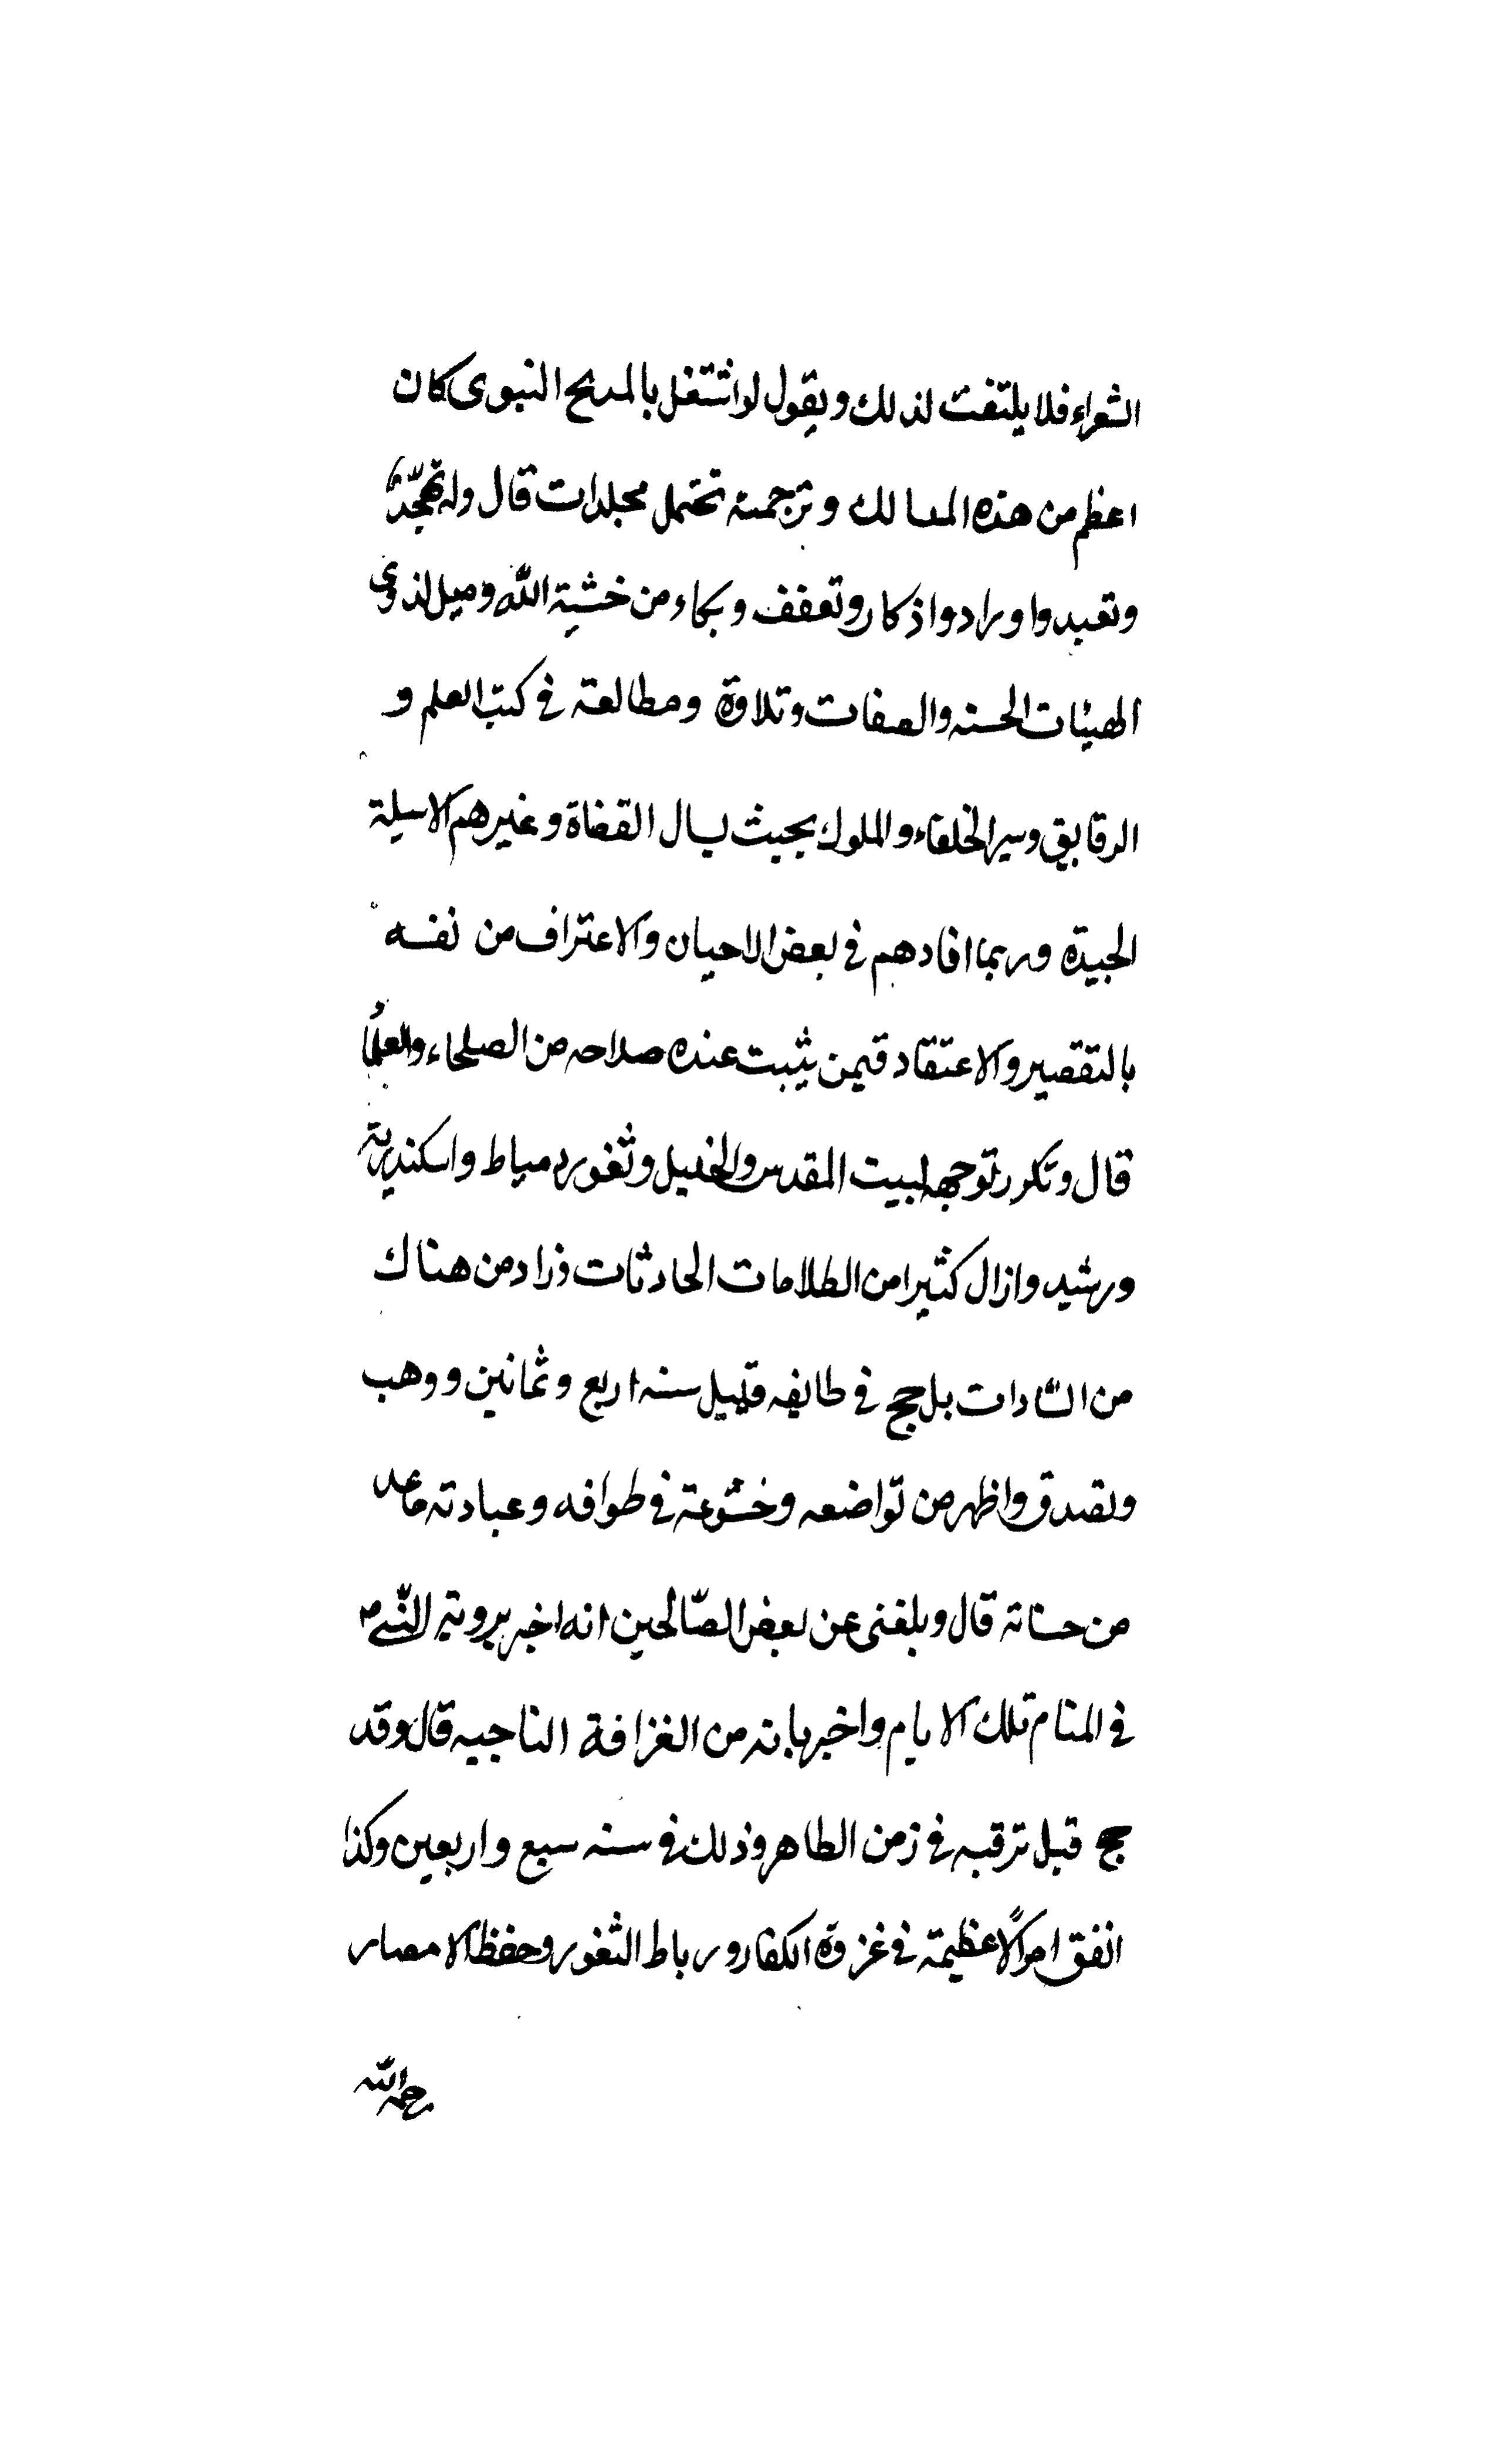 الشعراء فلا يلتفت لذلك ويقول لو اشتغل بالمديح النبوى كان
اعظم من هذه المسالك وترجمته تحتمل مجلدات قال وله تهجّدٌ
وتعبد واوراد واذكار وتعفف وبكاء من خشية الله وميل لذوى
الهيئات الحسنه والصفات وتلاوة ومطالعة في كتب العلم و
الرقايق وسير الخلفاء والملوك بحيث يسال القضاة وغيرهم الاسيلة
الجيدة وربما افادهم في بعض الاحيان والاعتراف من نفسه
بالتقصير والاعتقاد فيمن يثبت عنده صلاحه من الصلحاء والعلماء
قال وتكرر توجهه لبيت المقدس والخليل وثغور دمياط واسكندرية
ورشيد وازال كثيرا من الظلامات الحادثات وزاد من هناك
من السادات بل حج في طايفه قبيل سنه اربع وثمانين ووهب
وتصدق واظهر من تواضعه وخشوعة في طوافه وعبادته ماعد
من حسناته قال وبلغنى عن بعض الصّالحين انه اخبر بروية النّبى م
في المنام تلك الايام واخبر بانه من الفرافة الناجيه قال وقد
حج قبل ترقيه في زمن الظاهر وذلك في سنه سبع واربعين وكذا
انفق اموالًا عظيمة في غزوة الكفار ورباط الثغور وحفظ الامصار
رحمه الله